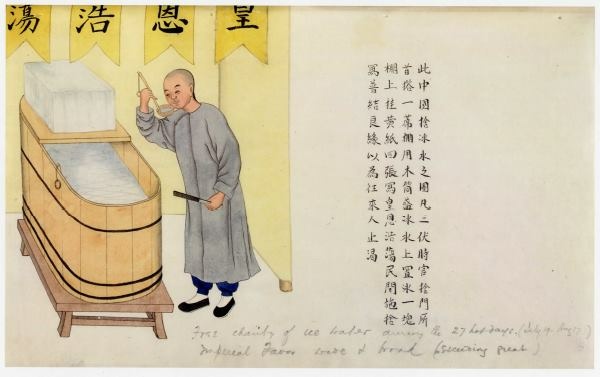 皇恩浩蕩
此中國捨冰水之圖凡三伏時官捨門所
首搭一蓆棚用木筒盛冰水上置冰一塊
棚上挂黃紙四張寫皇恩浩蕩民間施捨
寫普結良緣以為往來人止渴
Free charity of ice water during the 27 hot days. (July Aug
Imperial Favor wide & broad (great)